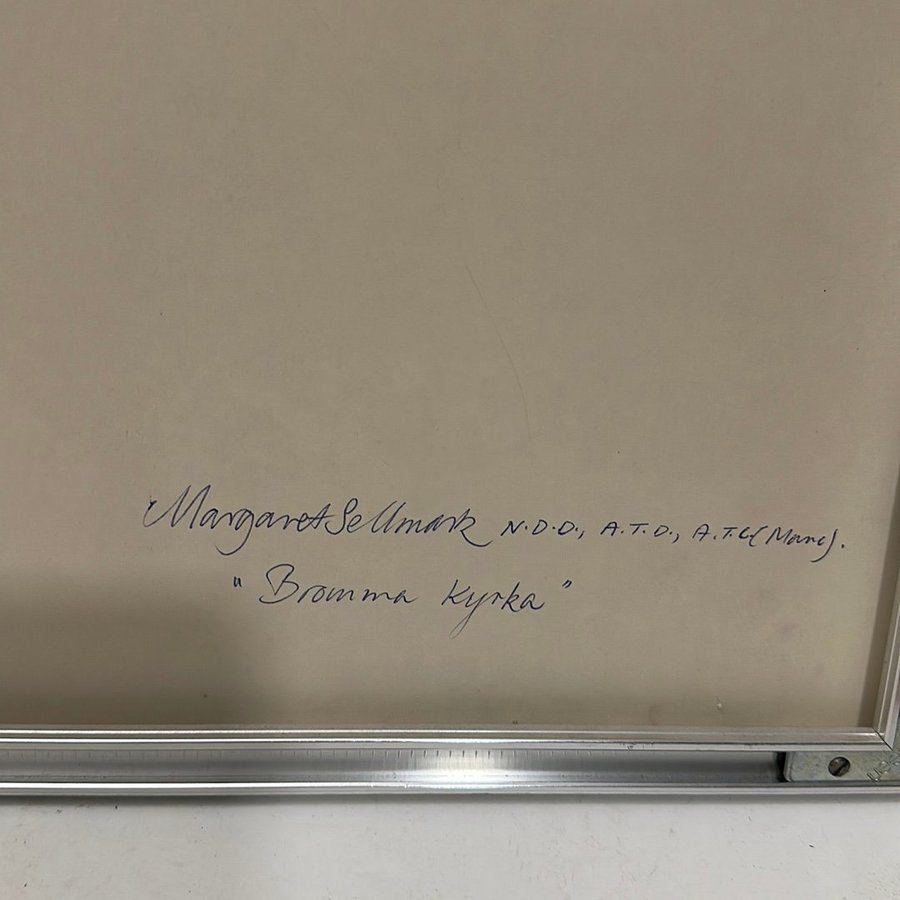 Margaret Sellmark N.D.D., A.T.D., A.T.C.(Manc).
"Bromma Kyrka"